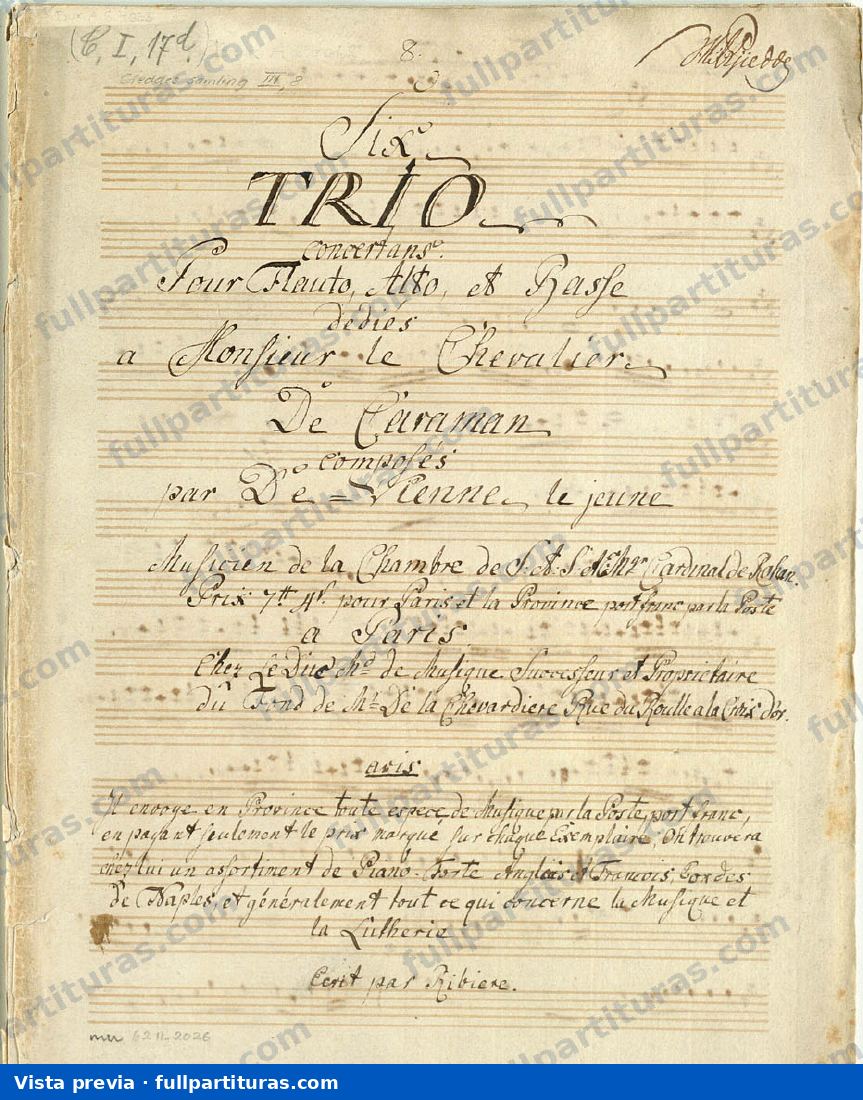 (C, I, 17d.)
8.
Giedges samling III, 8
Six
TRIO
concertans.
Pour Flauto, Alto, et Basse
dédiés
a Monsieur le Chevalier
De Caraman
composés
par De=Vienne le jeune
Musicien de la Chambre de S. A. S. Cardinal de Rohan
Prix 7tt 4s. pour Paris et la Province port franc par la Poste
a Paris
Chez Le Duc Md. de Musique Successeur et Propriétaire
du Fond de Mr. De la Chevardiere Rue du Roulle a la Croix d'or.
avis
Il envoye en Province toute espece de Musique par la Poste, port franc,
en payant seulement le prix marqué sur chaque Exemplaire, On trouvera
chez lui un assortiment de Piano-Forte Anglois et François, Cordes
de Naples, et généralement tout ce qui concerne la Musique et
la Lutherie
Ecrit par Ribiere.
mu 6211.2026
fullpartituras.com
Vista previa · fullpartituras.com